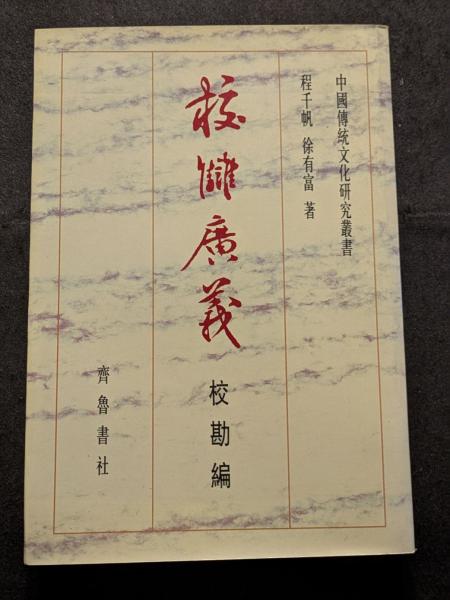 中國傳統文化研究叢書
程千帆 徐有富 著
校讎廣義
校勘編
齊魯書社